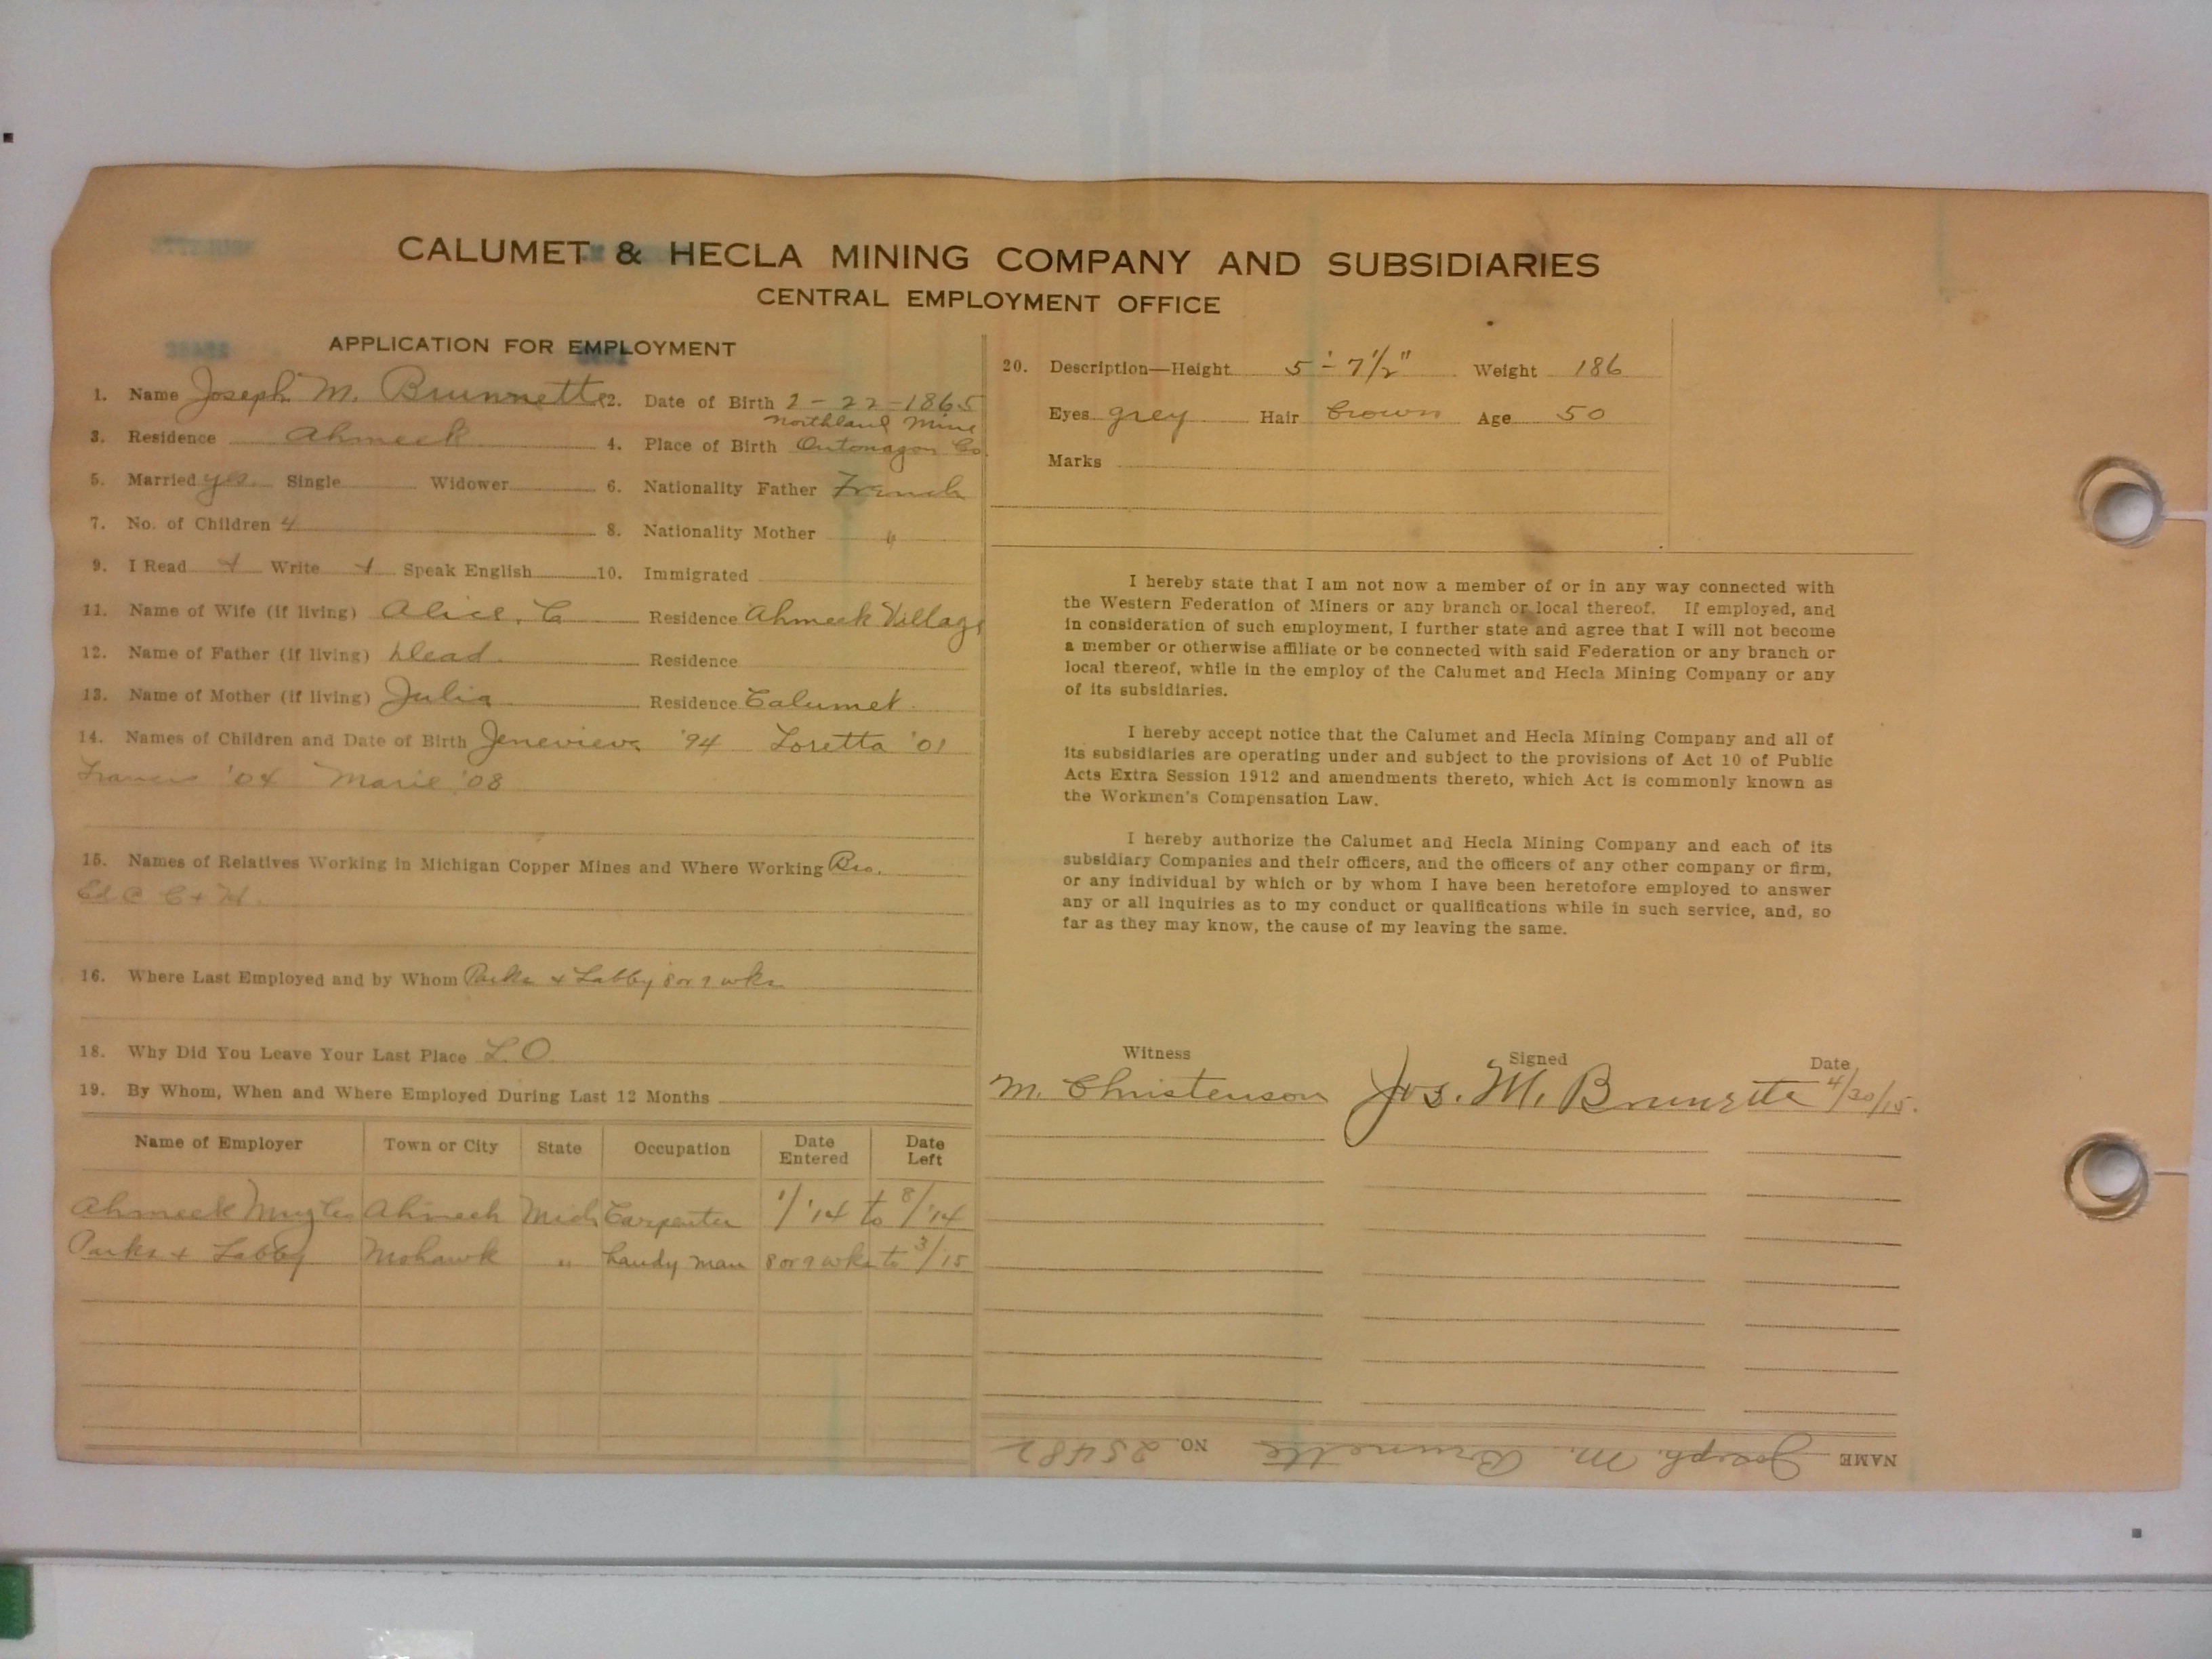 CALUMET & HECLA MINING COMPANY AND SUBSIDIARIES
CENTRAL EMPLOYMENT OFFICE
APPLICATION FOR EMPLOYMENT
1. Name Joseph M. Brunnette 2. Date of Birth 2-22-1865
Northland Mine
3. Residence Ahmeek 4. Place of Birth Ontonagon Co.
5. Married yes Single Widower 6. Nationality Father French
7. No. of Children 4 8. Nationality Mother "
9. I Read + Write + Speak English 10. Immigrated
11. Name of Wife (if living) Alice, C Residence Ahmeek Village
12. Name of Father (if living) Dead Residence
13. Name of Mother (if living) Julia Residence Calumet.
14. Names of Children and Date of Birth Jenevieve '94 Loretta '01
Francis '04 Marie '08
15. Names of Relatives Working in Michigan Copper Mines and Where Working Bro.
Ed C C+H.
16. Where Last Employed and by Whom Parks + Labby 8 or 9 wks
18. Why Did You Leave Your Last Place L.O.
19. By Whom, When and Where Employed During Last 12 Months
Name of Employer Town or City State Occupation Date Entered Date Left
Ahmeek Ahmeek Mich Carpenter 1/'14 to 8/'14
Parks + Labby Mohawk " handy man 8 or 9 wks to 3/15
20. Description—Height 5'-7½" Weight 186
Eyes grey Hair brown Age 50
Marks
I hereby state that I am not now a member of or in any way connected with
the Western Federation of Miners or any branch or local thereof. If employed, and
in consideration of such employment, I further state and agree that I will not become
a member or otherwise affiliate or be connected with said Federation or any branch or
local thereof, while in the employ of the Calumet and Hecla Mining Company or any
of its subsidiaries.
I hereby accept notice that the Calumet and Hecla Mining Company and all of
its subsidiaries are operating under and subject to the provisions of Act 10 of Public
Acts Extra Session 1912 and amendments thereto, which Act is commonly known as
the Workmen's Compensation Law.
I hereby authorize the Calumet and Hecla Mining Company and each of its
subsidiary Companies and their officers, and the officers of any other company or firm,
or any individual by which or by whom I have been heretofore employed to answer
any or all inquiries as to my conduct or qualifications while in such service, and, so
far as they may know, the cause of my leaving the same.
Witness Signed Date
M. Christenson Jos. M. Brunette 4/30/15.
NAME Joseph M. Brunette NO. 25482